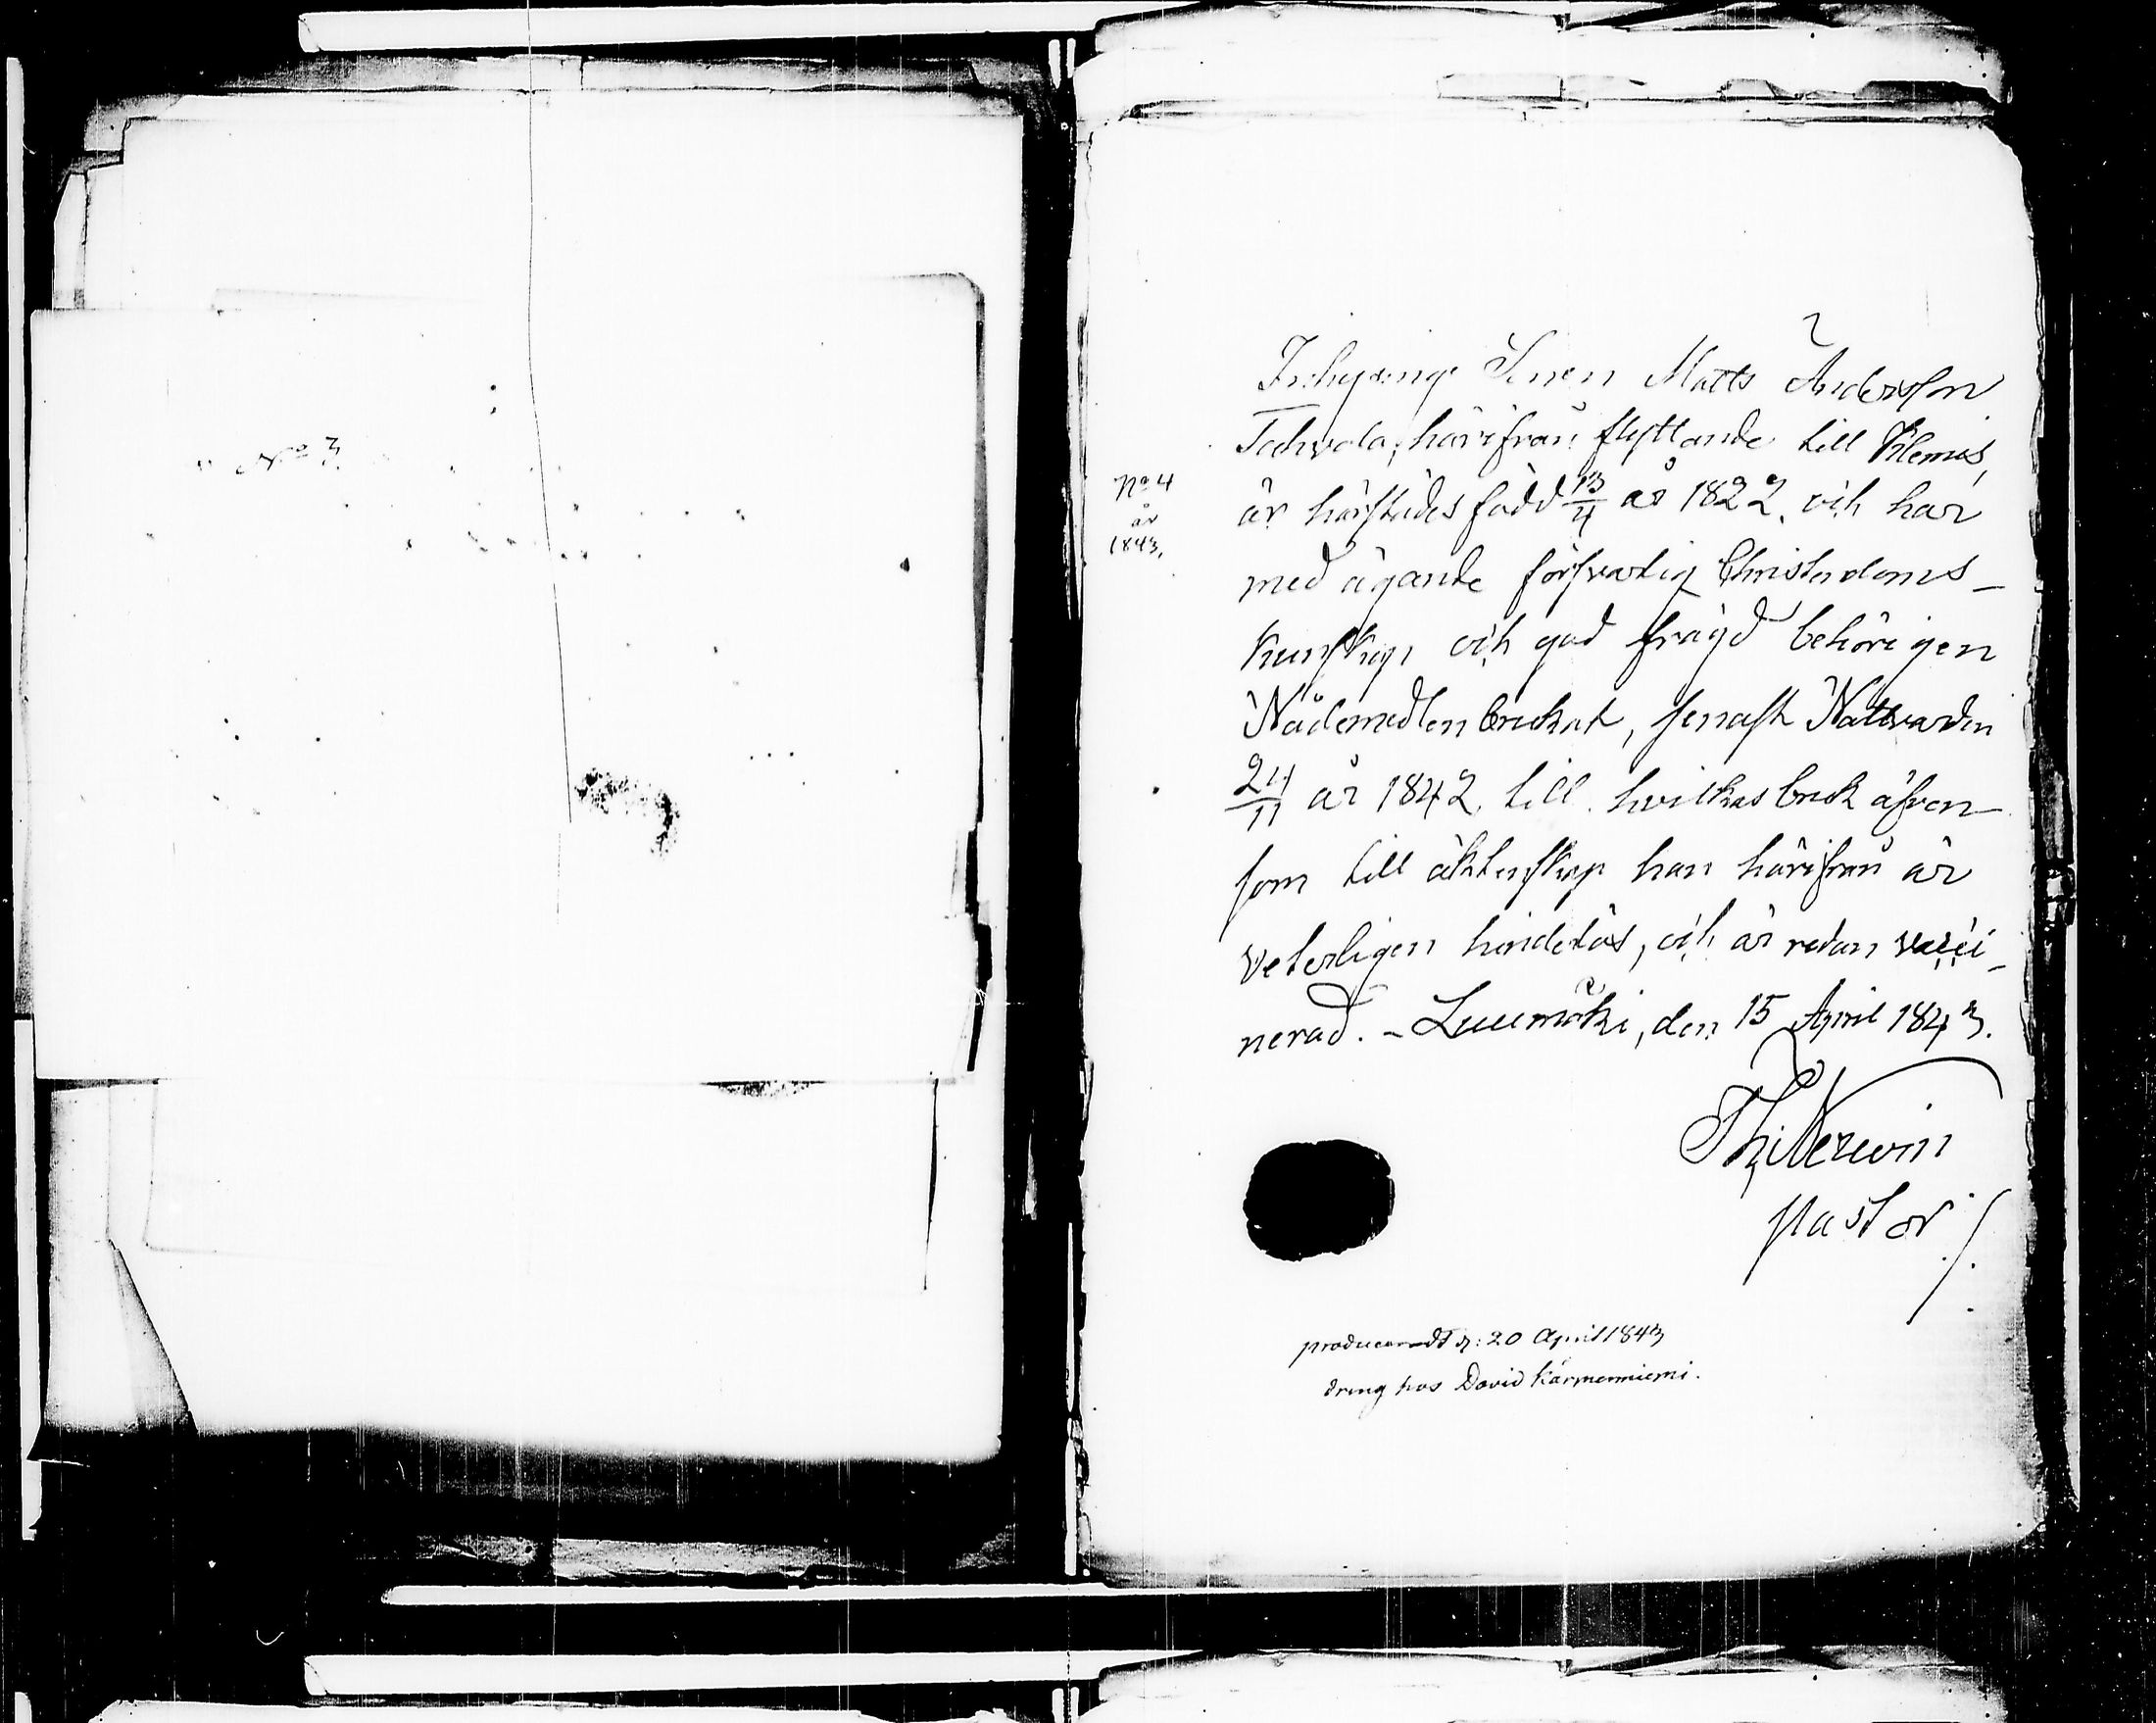 No 3.
No 4
år
1843.
Inhysinge Sonen Matts Andersson
Tahvola, härifrån flyttande till Klemis,
är härstädes född 13/4 år 1822, och har
med ägande försvarlig Christendoms-
kunskap och god frägd behörigen
Nådemedlen brukat, senast Nattvarden
24/11 år 1842, till hvilkas bruk äfven
som till äktenskap han härifrån är
veterligen hinderlös, och är redan vacci-
nerad. - Luumäki, den 15 April 1843.
Pastor
produceradt d: 20 April 1843
dreng hos David Kärmenniemi.